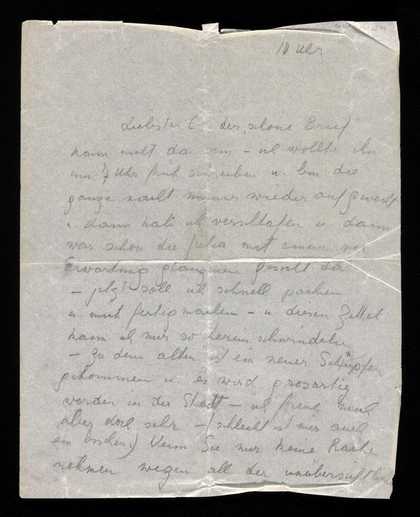 10 Uhr
Liebster C der schöne Brief
kann nicht da sein – ich wollte ihn
um 7 Uhr früh schreiben u. bin die
ganze Nacht immer wieder aufgewacht
u. dann hab ich verschlafen u. dann
war schon die Julia mit einem vor
Erwartung Gesicht da
– jetzt soll ich schnell packen
u. mich fertig machen – u. diesen Zettel
kann ich nur so herein schwindeln
– zu dem alten ist ein neuer Schöpfer
gekommen u. es wird grossartig
werden in der Stadt – ich freue mich
aber doch sehr – (schlecht ist mir auch
ein bischen) Wenn Sie nur keine Rache
nehmen wegen all der